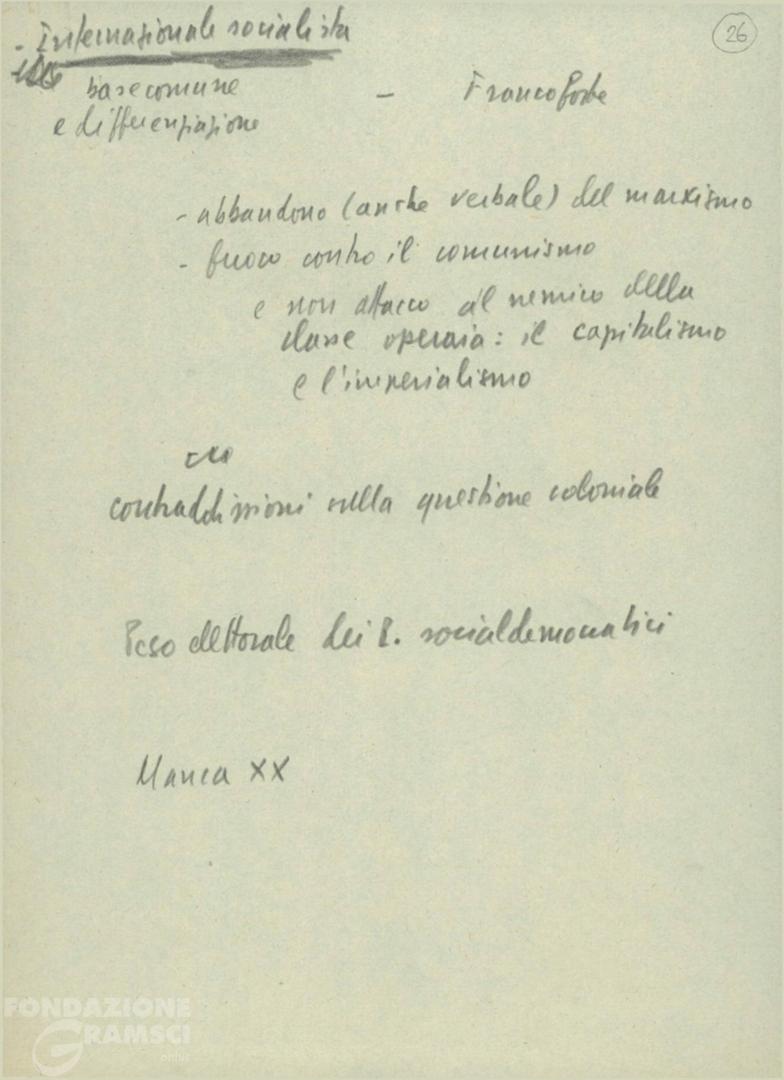 - Internazionale socialista
26
base comune - Francoforte
e differenziazione
- abbandono (anche verbale) del marxismo
- fuoco contro il comunismo
e non attacco al nemico della
classe operaia: il capitalismo
e l'imperialismo
contraddizioni sulla questione coloniale
Peso elettorale dei P. socialdemocratici
Manca XX
FONDAZIONE
GRAMSCI
onlus